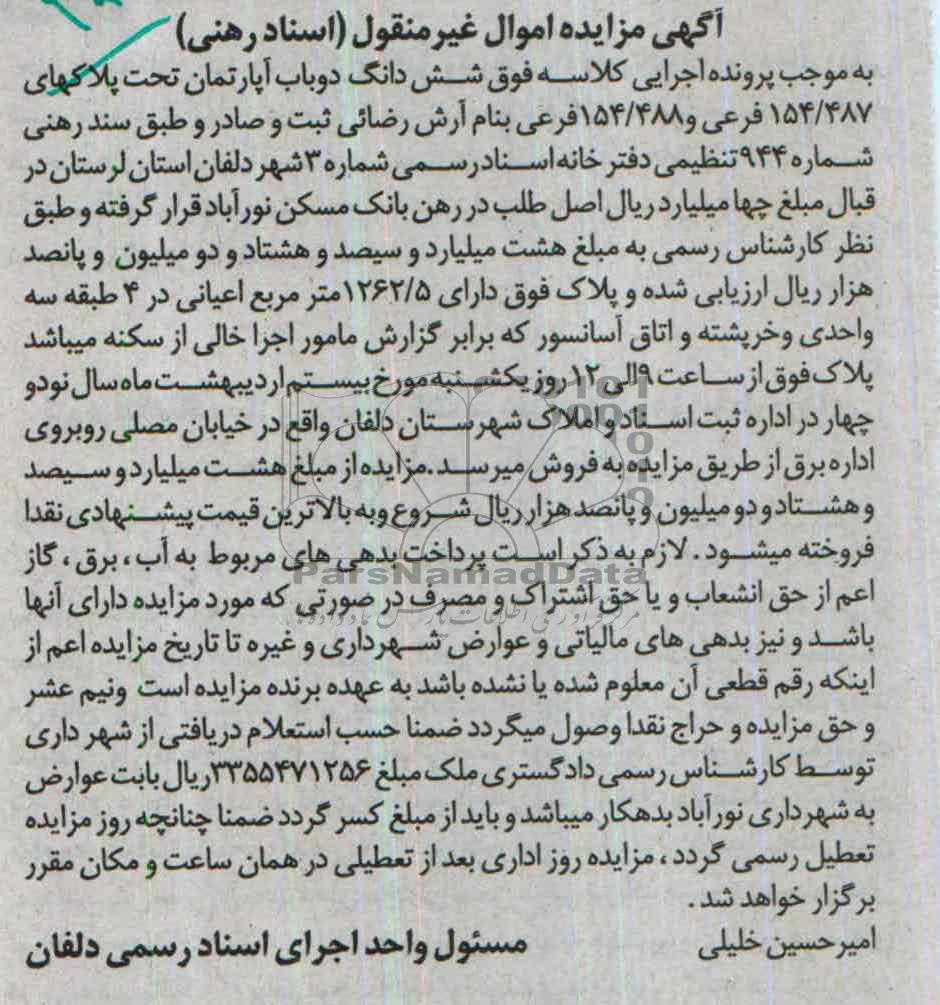 آگهی مزایده اموال غیرمنقول (اسناد رهنی)
به موجب پرونده اجرایی کلاسه فوق شش دانگ دوباب آپارتمان تحت پلاکهای
۱۵۴/۴۸۷ فرعی و۱۵۴/۴۸۸فرعی بنام آرش رضائی ثبت و صادر و طبق سند رهنی
شماره ۹۴۴تنظیمی دفتر خانه اسناد رسمی شماره ۳شهر دلفان استان لرستان در
قبال مبلغ چها میلیارد ریال اصل طلب در رهن بانک مسکن نورآباد قرار گرفته و طبق
نظر کارشناس رسمی به مبلغ هشت میلیارد و سیصد و هشتاد و دو میلیون و پانصد
هزار ریال ارزیابی شده و پلاک فوق دارای ۱۲۶۲/۵متر مربع اعیانی در ۴ طبقه سه
واحدی وخرپشته و اتاق آسانسور که برابر گزارش مامور اجرا خالی از سکنه میباشد
پلاک فوق از ساعت ۹الی ۱۲ روز یکشنبه مورخ بیستم اردیبهشت ماه سال نودو
چهار در اداره ثبت اسناد و املاک شهرستان دلفان واقع در خیابان مصلی روبروی
اداره برق از طریق مزایده به فروش میرسد.مزایده از مبلغ هشت میلیارد و سیصد
و هشتاد و دو میلیون و پانصد هزار ریال شروع وبه بالاترین قیمت پیشنهادی نقدا
فروخته میشود . لازم به ذکر است پرداخت بدهی های مربوط به آب ، برق ، گاز
اعم از حق انشعاب و یا حق اشتراک و مصرف در صورتی که مورد مزایده دارای آنها
باشد و نیز بدهی های مالیاتی و عوارض شهرداری و غیره تا تاریخ مزایده اعم از
اینکه رقم قطعی آن معلوم شده یا نشده باشد به عهده برنده مزایده است ونیم عشر
و حق مزایده و حراج نقدا وصول میگردد ضمنا حسب استعلام دریافتی از شهر داری
توسط کارشناس رسمی دادگستری ملک مبلغ ۳۳۵۵۴۷۱۲۵۶ریال بابت عوارض
به شهرداری نورآباد بدهکار میباشد و باید از مبلغ کسر گردد ضمنا چنانچه روز مزایده
تعطیل رسمی گردد ، مزایده روز اداری بعد از تعطیلی در همان ساعت و مکان مقرر
برگزار خواهد شد .
امیرحسین خلیلی مسئول واحد اجرای اسناد رسمی دلفان
ParsNamadData